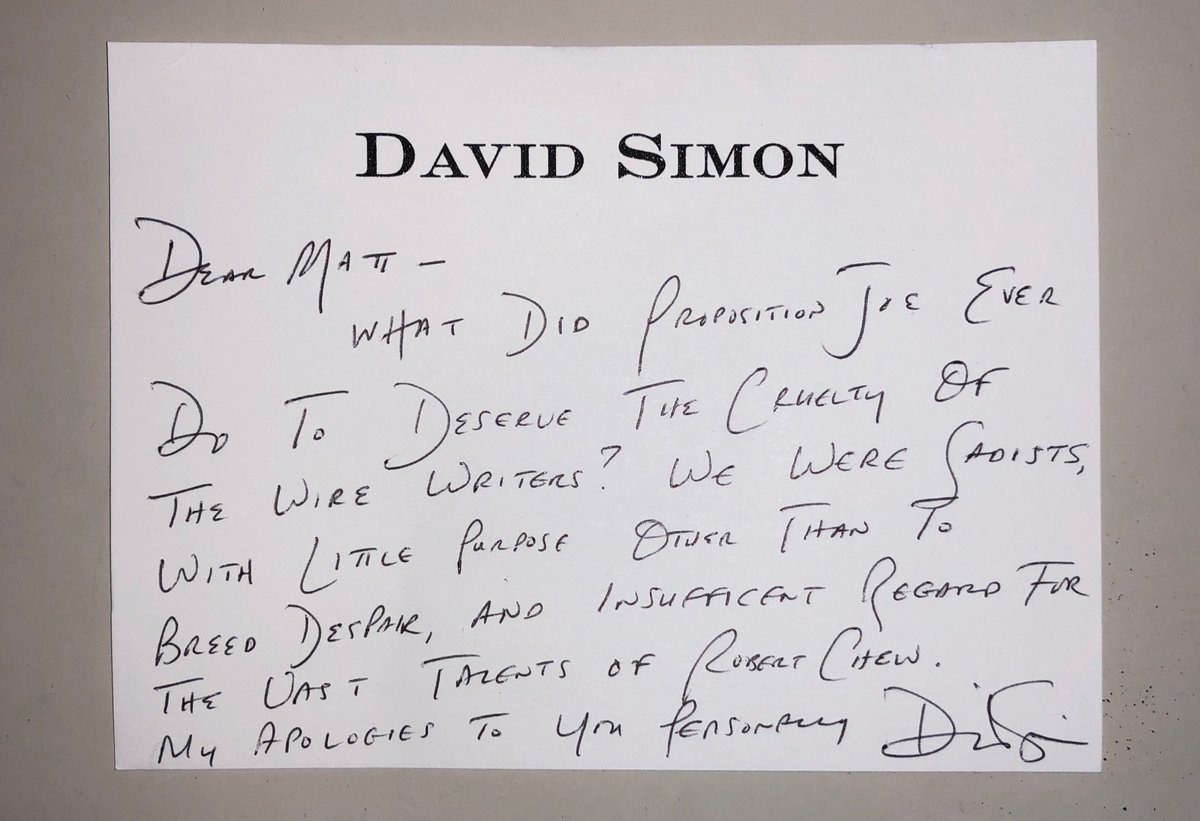 DAVID SIMON
DEAR MATT –
WHAT DID PROPOSITION JOE EVER
DO TO DESERVE THE CRUELTY OF
THE WIRE WRITERS? WE WERE SADISTS,
WITH LITTLE PURPOSE OTHER THAN TO
BREED DESPAIR, AND INSUFFICENT REGARD FOR
THE VAST TALENTS OF ROBERT CHEW.
MY APOLOGIES TO YOU PERSONALLY